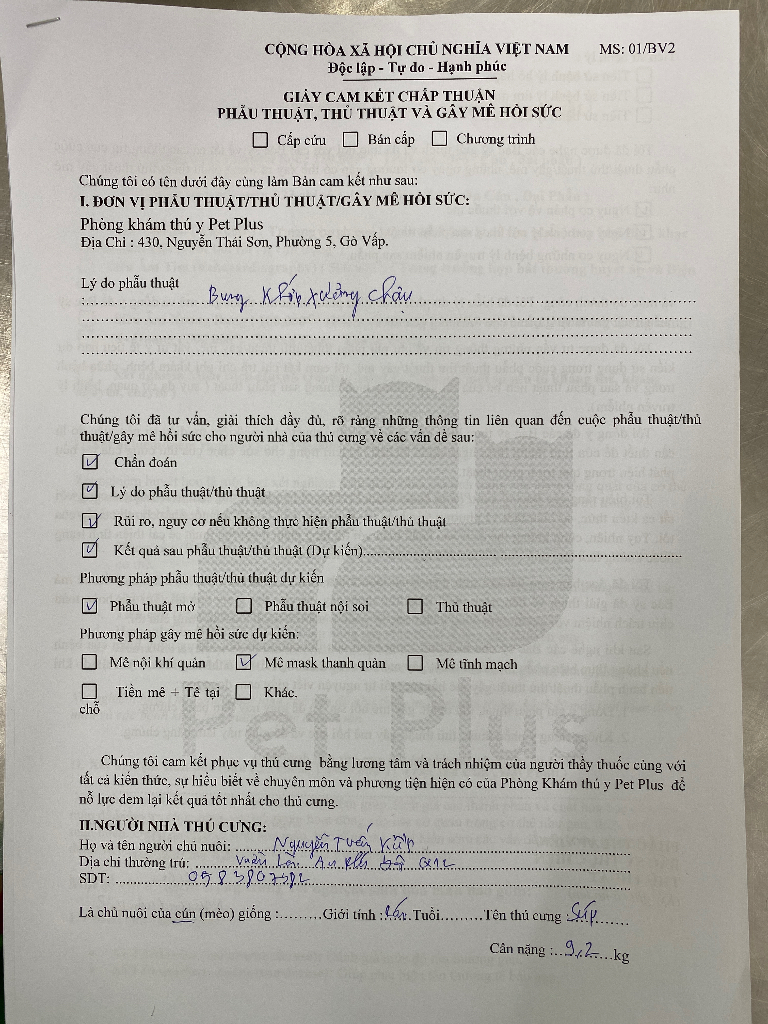 CỘNG HÒA XÃ HỘI CHỦ NGHĨA VIỆT NAM MS: 01/BV2
Độc lập - Tự do - Hạnh phúc
GIẤY CAM KẾT CHẤP THUẬN
PHẪU THUẬT, THỦ THUẬT VÀ GÂY MÊ HỒI SỨC
Cấp cứu Bán cấp Chương trình
Chúng tôi có tên dưới đây cùng làm Bản cam kết như sau:
I. ĐƠN VỊ PHẪU THUẬT/THỦ THUẬT/GÂY MÊ HỒI SỨC:
Phòng khám thú y Pet Plus
Địa Chỉ : 430, Nguyễn Thái Sơn, Phường 5, Gò Vấp.
Lý do phẫu thuật
: Bung khớp xương chậu
Chúng tôi đã tư vấn, giải thích đầy đủ, rõ ràng những thông tin liên quan đến cuộc phẫu thuật/thủ
thuật/gây mê hồi sức cho người nhà của thú cưng về các vấn đề sau:
Chẩn đoán
Lý do phẫu thuật/thủ thuật
Rủi ro, nguy cơ nếu không thực hiện phẫu thuật/thủ thuật
Kết quả sau phẫu thuật/thủ thuật (Dự kiến)
Phương pháp phẫu thuật/thủ thuật dự kiến
Phẫu thuật mở Phẫu thuật nội soi Thủ thuật
Phương pháp gây mê hồi sức dự kiến:
Mê nội khí quản Mê mask thanh quản Mê tĩnh mạch
Tiền mê + Tê tại Khác.
chỗ
Pet Plus
Chúng tôi cam kết phục vụ thú cưng bằng lương tâm và trách nhiệm của người thầy thuốc cùng với
tất cả kiến thức, sự hiểu biết về chuyên môn và phương tiện hiện có của Phòng Khám thú y Pet Plus để
nỗ lực đem lại kết quả tốt nhất cho thú cưng.
II.NGƯỜI NHÀ THÚ CƯNG:
Họ và tên người chủ nuôi: Nguyễn Tuấn Kiệt
Địa chỉ thường trú: An Phú
SDT: 0583807382
Là chủ nuôi của cún (mèo) giống : Giới tính : Tuổi Tên thú cưng :
Cân nặng : 9,2 kg